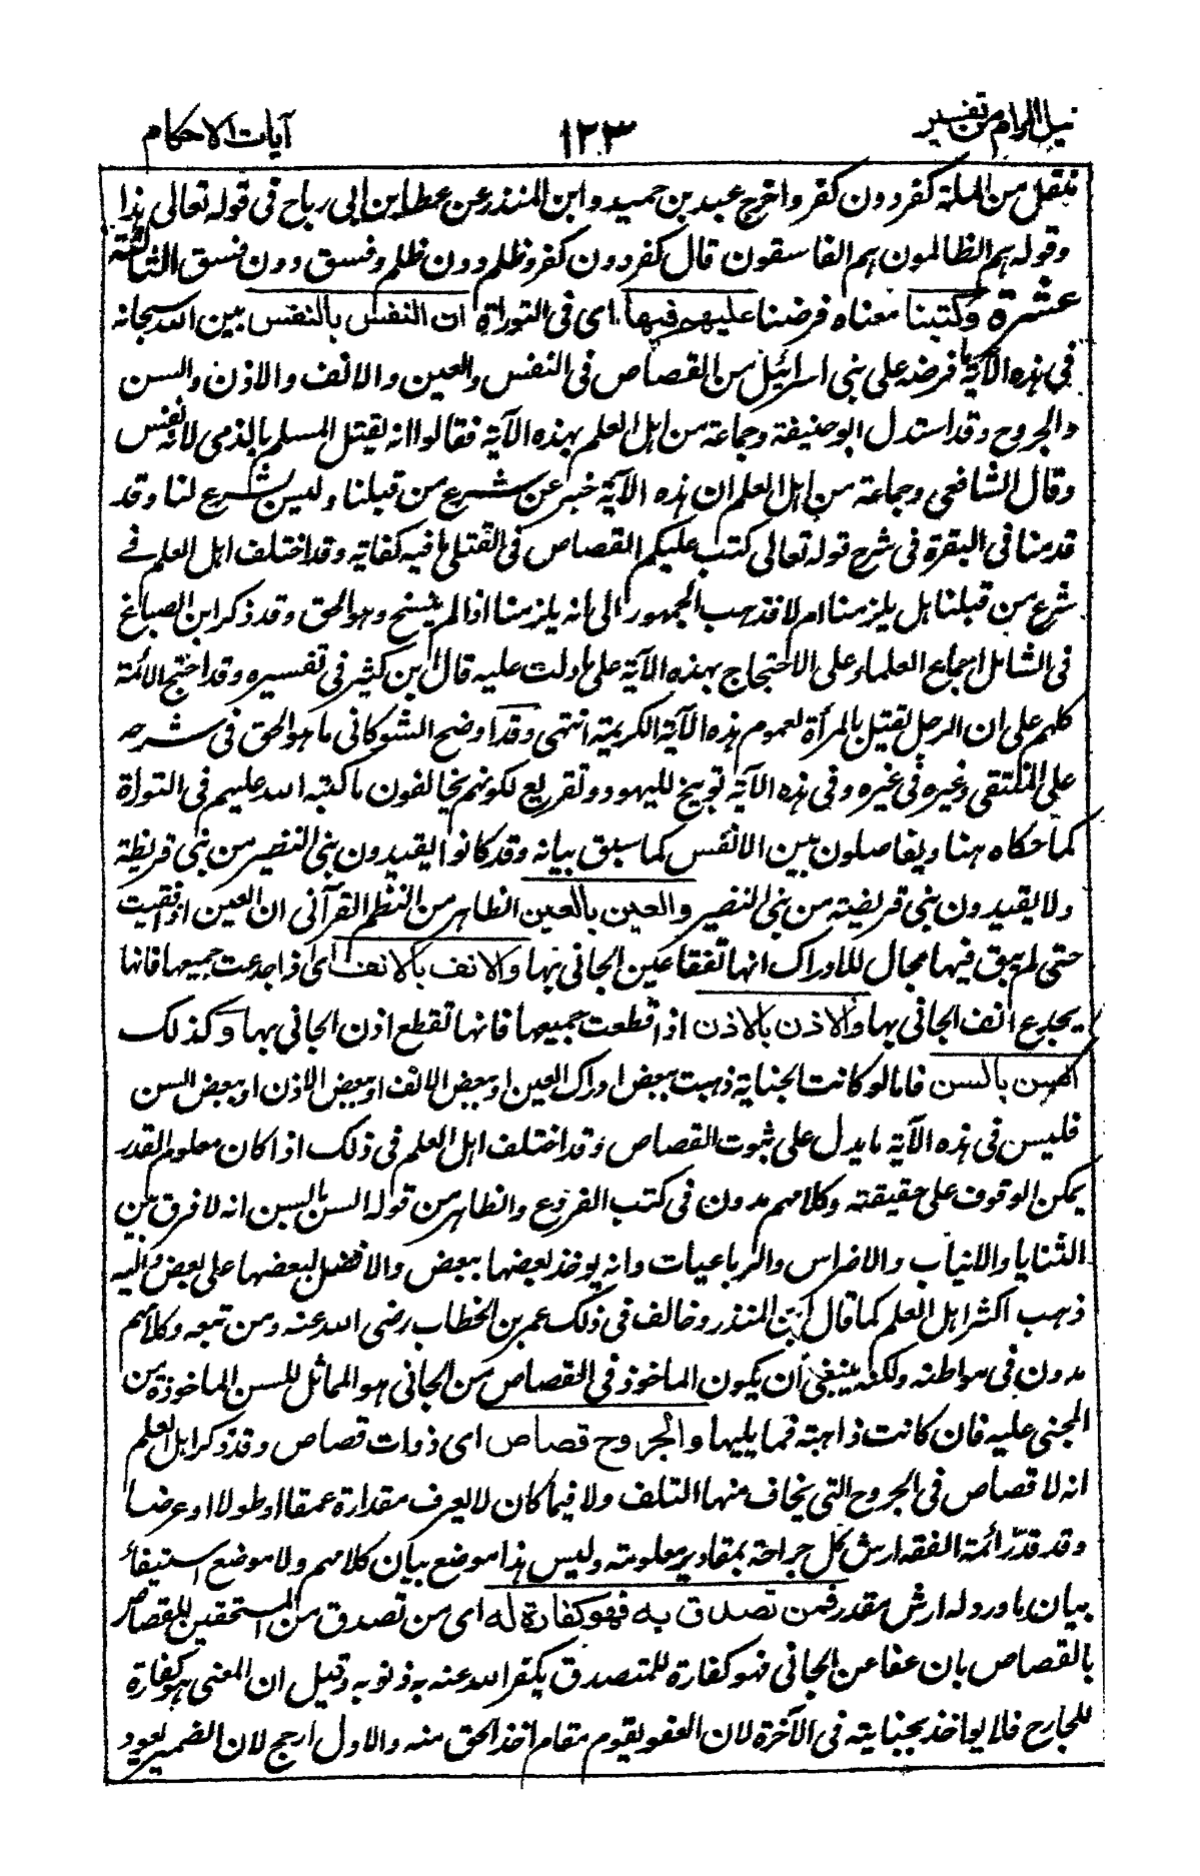 نيل المرام من تفسير ١٢٣ آيات الاحكام
ينقل من الملة كفر دون كفر واخرج عبد بن حميد وابن المنذر عن عطا بن ابى رباح فى قوله تعالى هذا
وقوله هم الظالمون هم الفاسقون قال كفر دون كفر وظلم دون ظلم وفسق دون فسق الثالثة
عشرة وكتبنا معناه فرضنا عليهم فيها اى فى التوراة ان النفس بالنفس بين الله سبحانه
فى هذه الآية ما فرضه على بنى اسرائيل من القصاص فى النفس والعين والانف والاذن والسن
والجروح وقد استدل ابو حنيفة وجماعة من اهل العلم بهذه الآية فقالوا انه يقتل المسلم بالذمى لانه نفس
وقال الشافعى وجماعة من اهل العلم ان هذه الآية خبر عن شرع من قبلنا وليس بشرع لنا وقد
قدمنا فى البقرة فى شرح قوله تعالى كتب عليكم القصاص فى القتلى ما فيه كفاية وقد اختلف اهل العلم فى
شرع من قبلنا هل يلزمنا ام لا فذهب الجمهور الى انه يلزمنا اذا لم ينسخ وهو الحق وقد ذكر ابن الصباغ
فى الشامل اجماع العلماء على الاحتجاج بهذه الآية على ما دلت عليه قال ابن كثير فى تفسيره وقد احتج الأئمة
كلهم على ان الرجل يقتل بالمرأة لعموم هذه الآية الكريمة انتهى وقد اوضح الشوكانى ما هو الحق فى شرحه
على المنتقى وغيره فى غيره وفى هذه الآية توبيخ لليهود وتقريع لكونهم يخالفون ما كتبه الله عليهم فى التوراة
كما حكاه هنا ويفاضلون بين الانفس كما سبق بيانه وقد كانوا يقيدون بنى النضير من بنى قريظة
ولا يقيدون بنى قريضة من بنى النضير والعين بالعين الظاهر من النظم القرآنى ان العين اذا فقيت
حتى لم يبق فيها مجال للادراك انها تفقا عين الجانى بها والانف بالانف اى اذا جدعت جميعها فانها
يجدع انف الجانى بها والاذن بالاذن اذا قطعت جميعها فانها تقطع اذن الجانى بها وكذلك
السن بالسن فاما لو كانت الجناية ذهبت ببعض ادراك العين او ببعض الانف او ببعض الاذن او ببعض السن
فليس فى هذه الآية ما يدل على ثبوت القصاص وقد اختلف اهل العلم فى ذلك اذا كان معلوم القدر
يمكن الوقوف على حقيقته وكلامهم مدون فى كتب الفروع والظاهر من قوله السن بالسن انه لا فرق بين
الثنايا والانياب والاضراس والرباعيات وانه يوخذ بعضها ببعض والا فضل لبعضها على بعض واليه
ذهب اكثر اهل العلم كما قال ابن المنذر وخالف فى ذلك عمر بن الخطاب رضى الله عنه ومن تبعه وكلامهم
مدون فى مواطنه ولكنه ينبغى أن يكون الماخوذ فى القصاص من الجانى هو المماثل للسن الماخوذة من
المجنى عليه فان كانت ذاهبة فما يليها والجروح قصاص اى ذوات قصاص وقد ذكر اهل العلم
انه لا قصاص فى الجروح التى يخاف منها التلف ولا فيما كان لا يعرف مقداره عمقا او طولا او عرضا
وقد قدّر ائمة الفقه ارش كل جراحة بمقادير معلومة وليس هذا موضع بيان كلامهم ولا موضع استيفاء
بيان ما ورد له ارش مقدر فمن تصدق به فهو كفارة له اى من تصدق من المستحقين للقصاص
بالقصاص بان عفا عن الجانى فهو كفارة للمتصدق يكفر الله عنه به ذنوبه وقيل ان المعنى هو كفارة
للجارح فلا يواخذ بجنايته فى الآخرة لان العفو يقوم مقام اخذ الحق منه والاول ارجح لان الضمير يعود